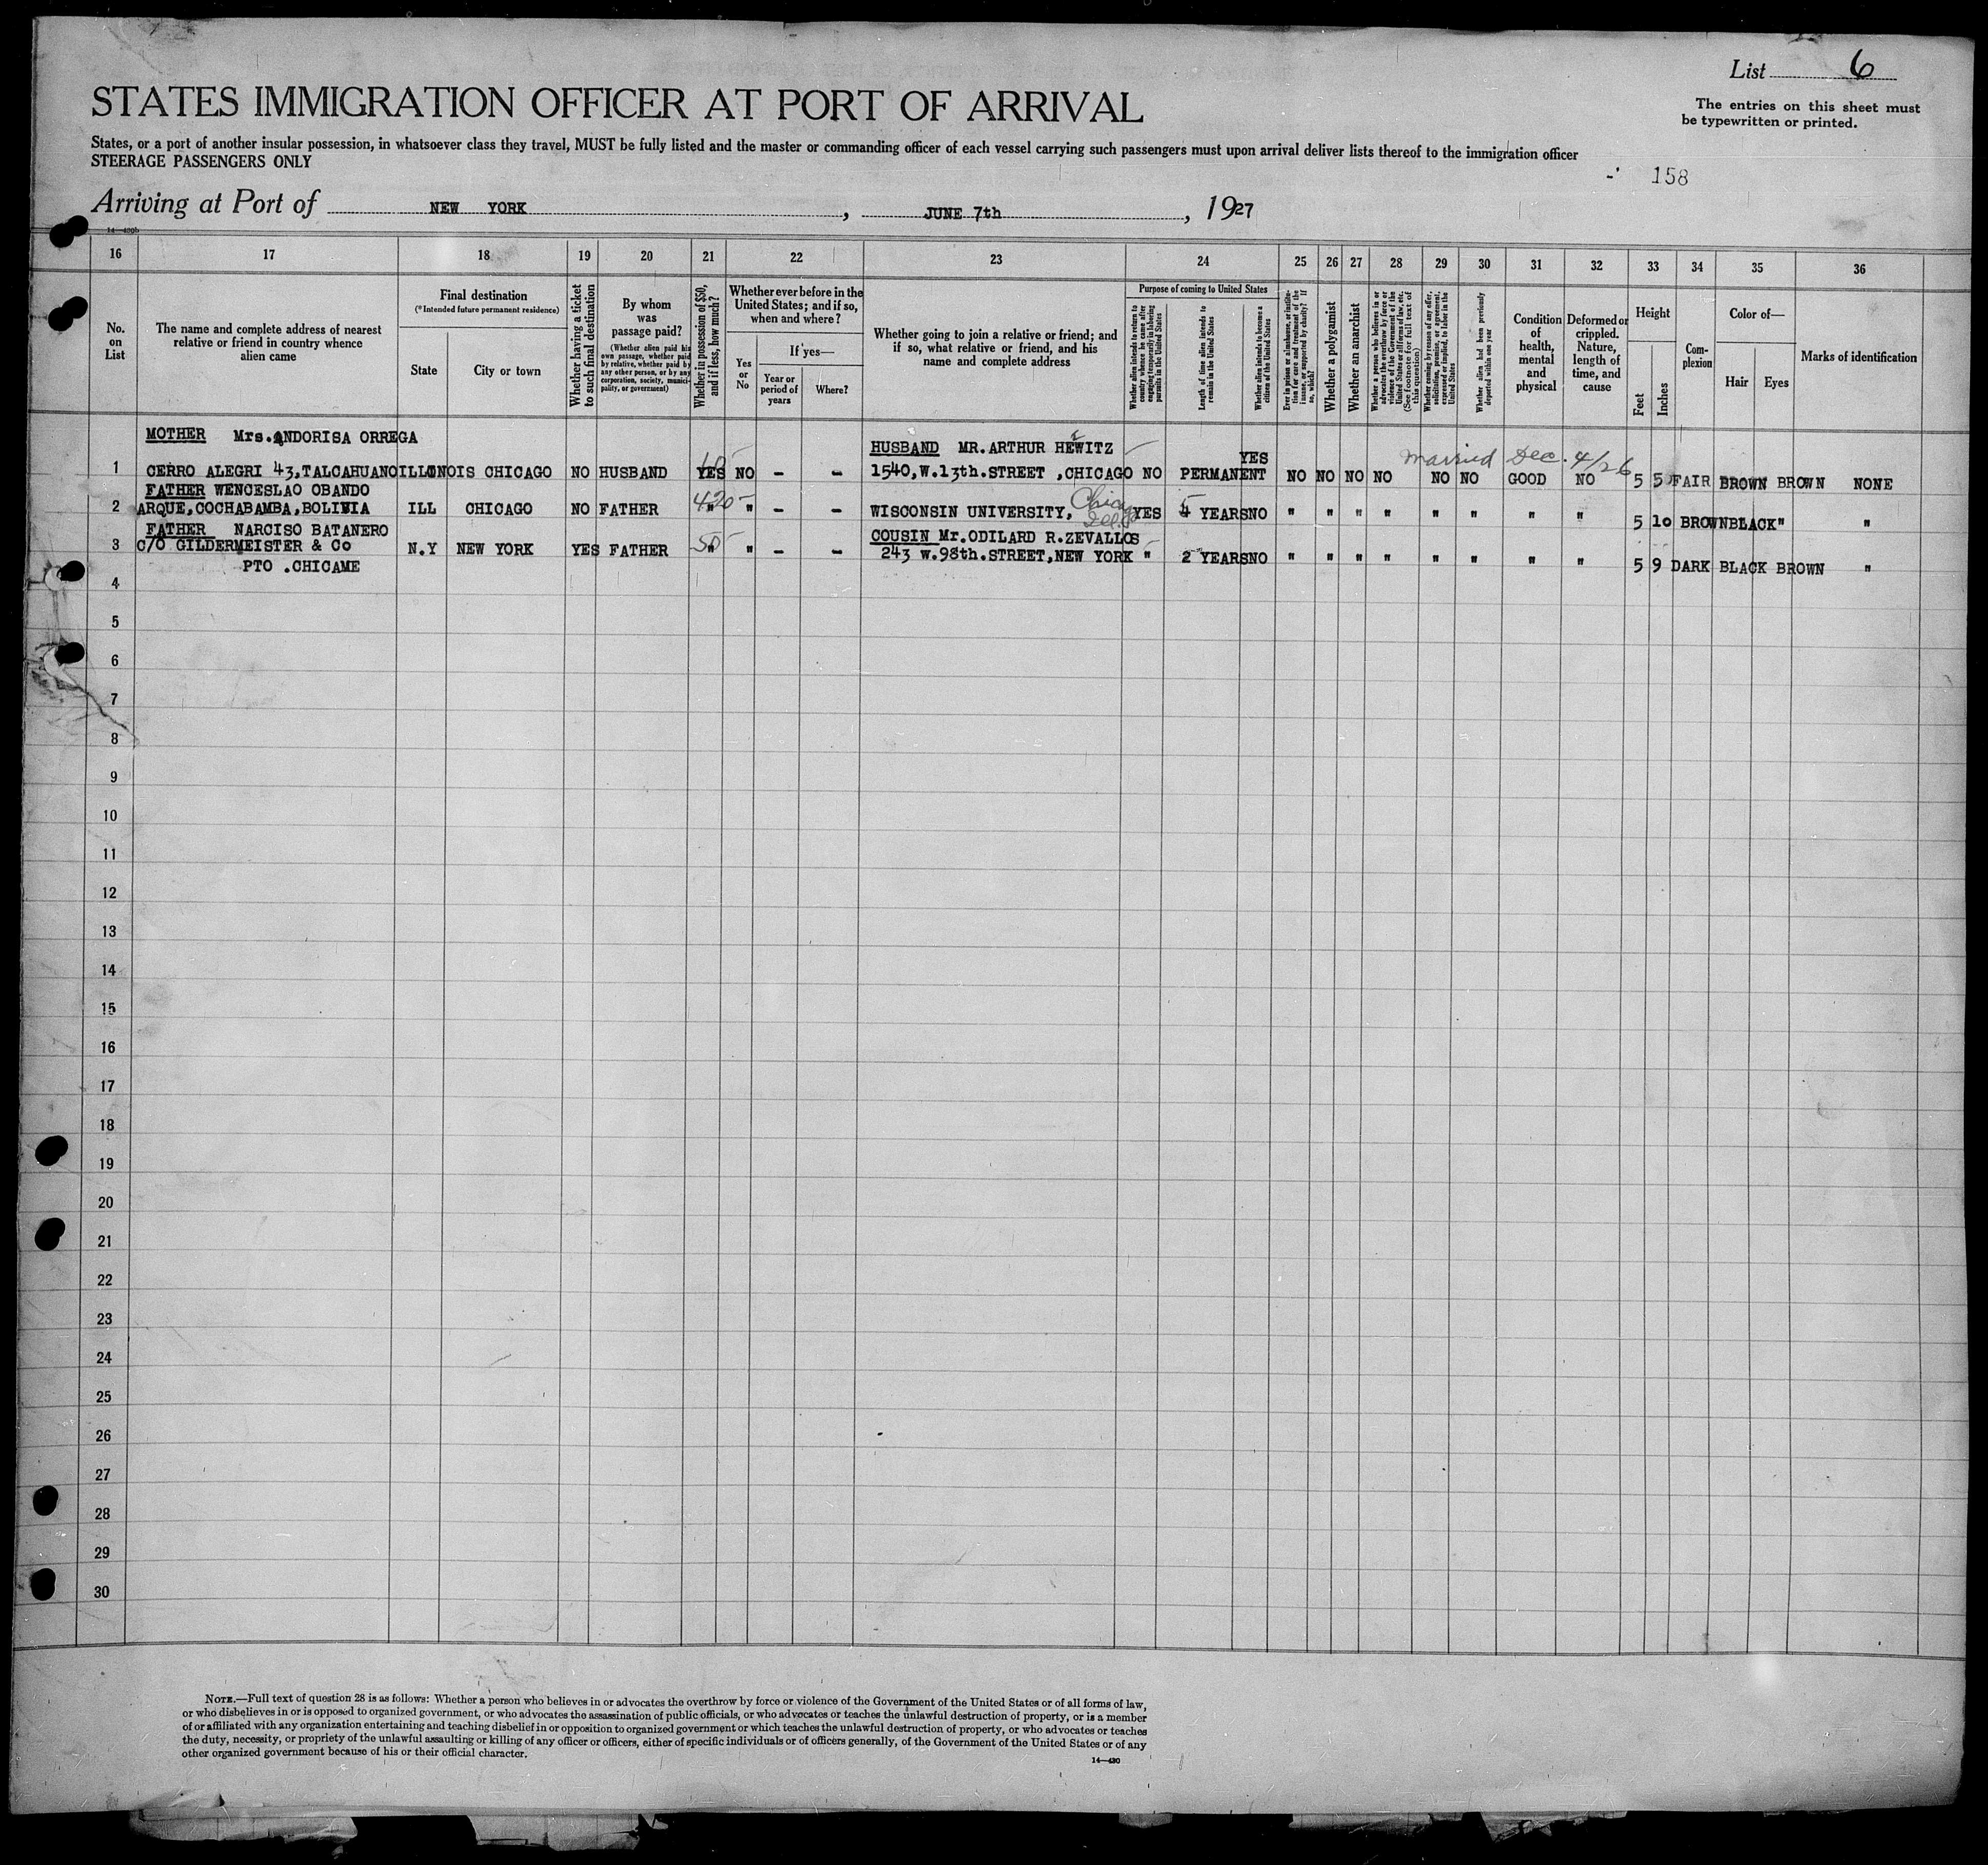 List 6
The entries on this sheet must
be typewritten or printed.
STATES IMMIGRATION OFFICER AT PORT OF ARRIVAL
States, or a port of another insular possession, in whatsoever class they travel, MUST be fully listed and the master or commanding officer of each vessel carrying such passengers must upon arrival deliver lists thereof to the immigration officer
STEERAGE PASSENGERS ONLY
158
Arriving at Port of NEW YORK, JUNE 7th, 1927
16 17 18 19 20 21 22 23 24 25 26 27 28 29 30 31 32 33 34 35 36
No. on List
The name and complete address of nearest relative or friend in country whence alien came
Final destination
(*Intended future permanent residence)
State
City or town
Whether having a ticket to such final destination
By whom was passage paid?
(Whether alien paid his own passage, whether paid by relative, whether paid by any other person, or by any corporation, society, municipality, or government)
Whether in possession of $50, and if less, how much?
Whether ever before in the United States; and if so, when and where?
Yes or No
If yes—
Year or period of years
Where?
Whether going to join a relative or friend; and if so, what relative or friend, and his name and complete address
Purpose of coming to United States
Whether alien intends to return to country whence he came after engaging temporarily in laboring pursuits in the United States
Length of time alien intends to remain in the United States
Whether alien intends to become a citizen of the United States
Ever in prison or almshouse, or institution for care and treatment of the insane, or supported by charity? If so, which?
Whether a polygamist
Whether an anarchist
Whether a person who believes in or advocates the overthrow by force or violence of the Government of the United States or all forms of law, etc. (See footnote for full text of this question)
Whether coming by reason of any offer, solicitation, promise, or agreement, expressed or implied, to labor in the United States
Whether alien had been previously deported within one year
Condition of health, mental and physical
Deformed or crippled. Nature, length of time, and cause
Height
Feet
Inches
Complexion
Color of—
Hair
Eyes
Marks of identification
MOTHER Mrs. ANDORISA ORREGA
HUSBAND MR.ARTHUR HEWITZ
YES
married Dec. 4/26
1 CERRO ALEGRI 43,TALCAHUANO ILLONOIS CHICAGO NO HUSBAND YES NO - - 1540,W.13th.STREET ,CHICAGO NO PERMANENT NO NO NO NO NO NO GOOD NO 5 5 FAIR BROWN BROWN NONE
FATHER WENCESLAO OBANDO
2 ARQUE,COCHABAMBA,BOLIVIA ILL CHICAGO NO FATHER 420 " " - - WISCONSIN UNIVERSITY, Chicago Ill. YES 4 YEARS NO " " " " " " " " 5 10 BROWN BLACK " "
FATHER NARCISO BATANERO
COUSIN Mr.ODILARD R.ZEVALLOS
3 C/O GILDERMEISTER & Co N.Y NEW YORK YES FATHER 50 " " - - 243 W.98th.STREET,NEW YORK " 2 YEARS NO " " " " " " " " 5 9 DARK BLACK BROWN "
PTO .CHICAME
4
5
6
7
8
9
10
11
12
13
14
15
16
17
18
19
20
21
22
23
24
25
26
27
28
29
30
NOTE.—Full text of question 28 is as follows: Whether a person who believes in or advocates the overthrow by force or violence of the Government of the United States or of all forms of law,
or who disbelieves in or is opposed to organized government, or who advocates the assassination of public officials, or who advocates or teaches the unlawful destruction of property, or is a member
of or affiliated with any organization entertaining and teaching disbelief in or opposition to organized government or which teaches the unlawful destruction of property, or who advocates or teaches
the duty, necessity, or propriety of the unlawful assaulting or killing of any officer or officers, either of specific individuals or of officers generally, of the Government of the United States or of any
other organized government because of his or their official character.
14—430